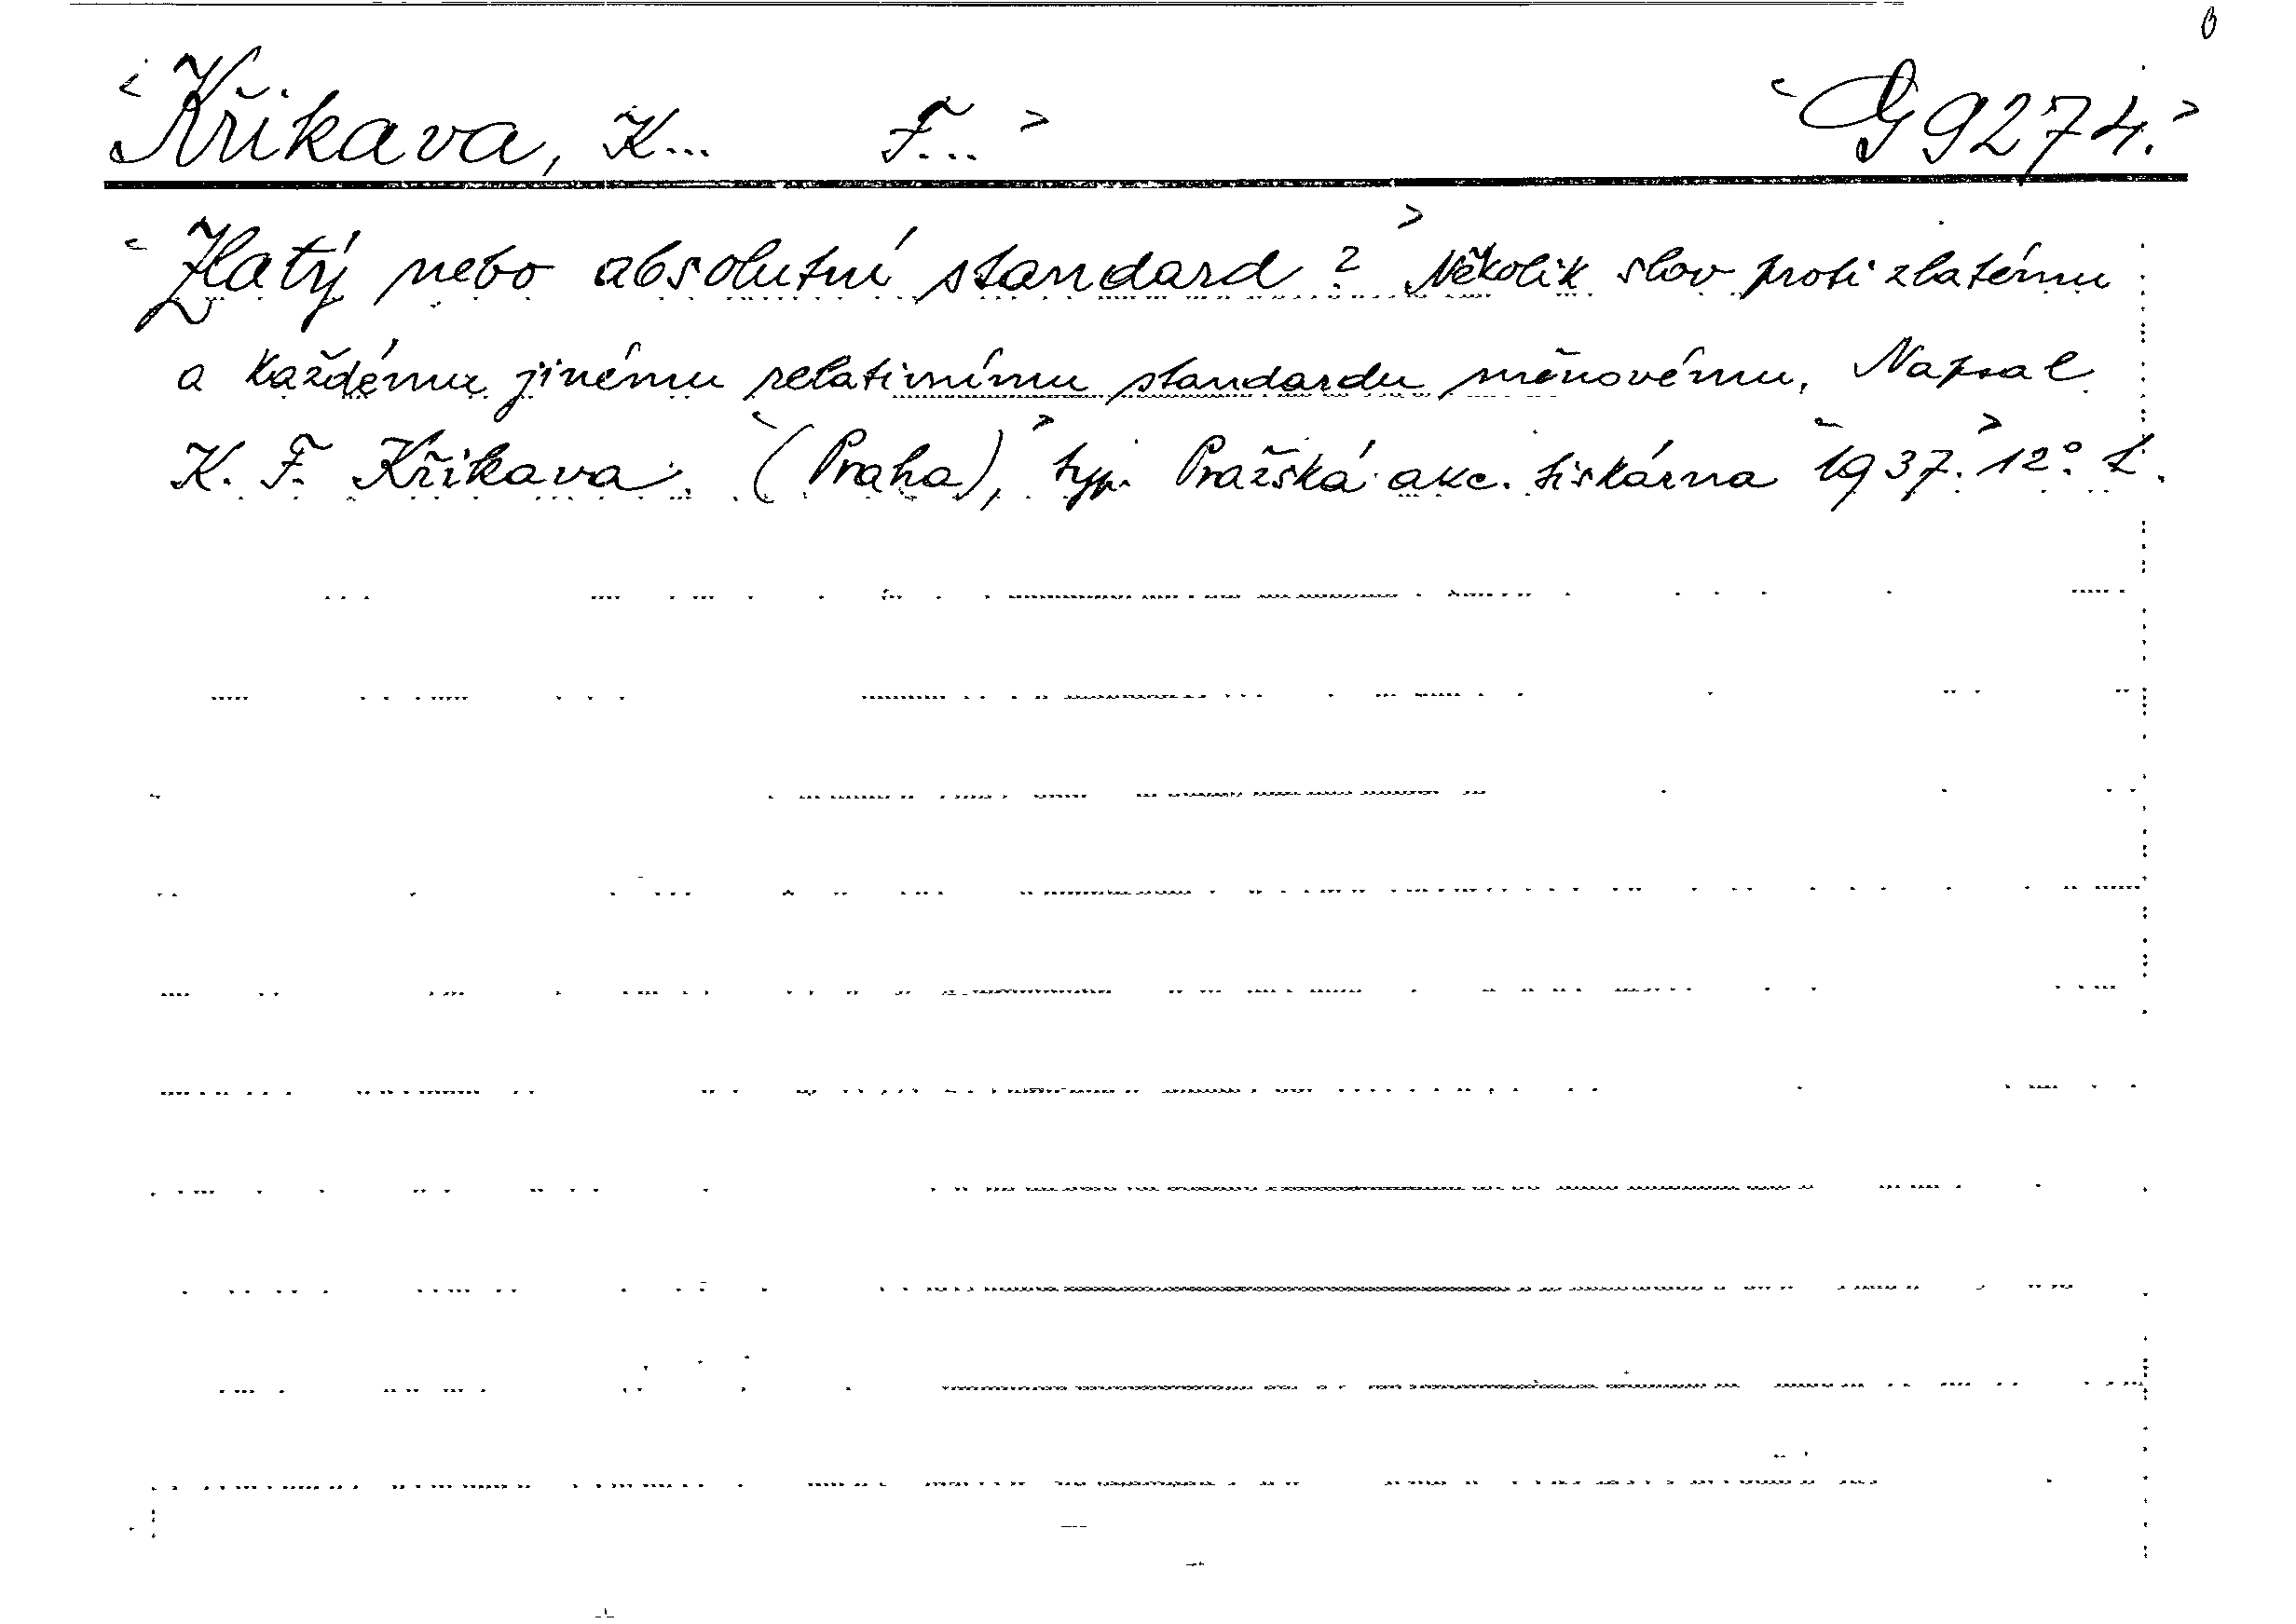 <Křikava, K... F...> <G 9274.>
<Zlatý nebo absolutní standard?> Několik slov proti zlatému
a každému jinému relativnímu standardu měnovému. Napsal
K. F. Křikava. <(Praha),> typ. Pražská akc. tiskárna <1937.> 12°.